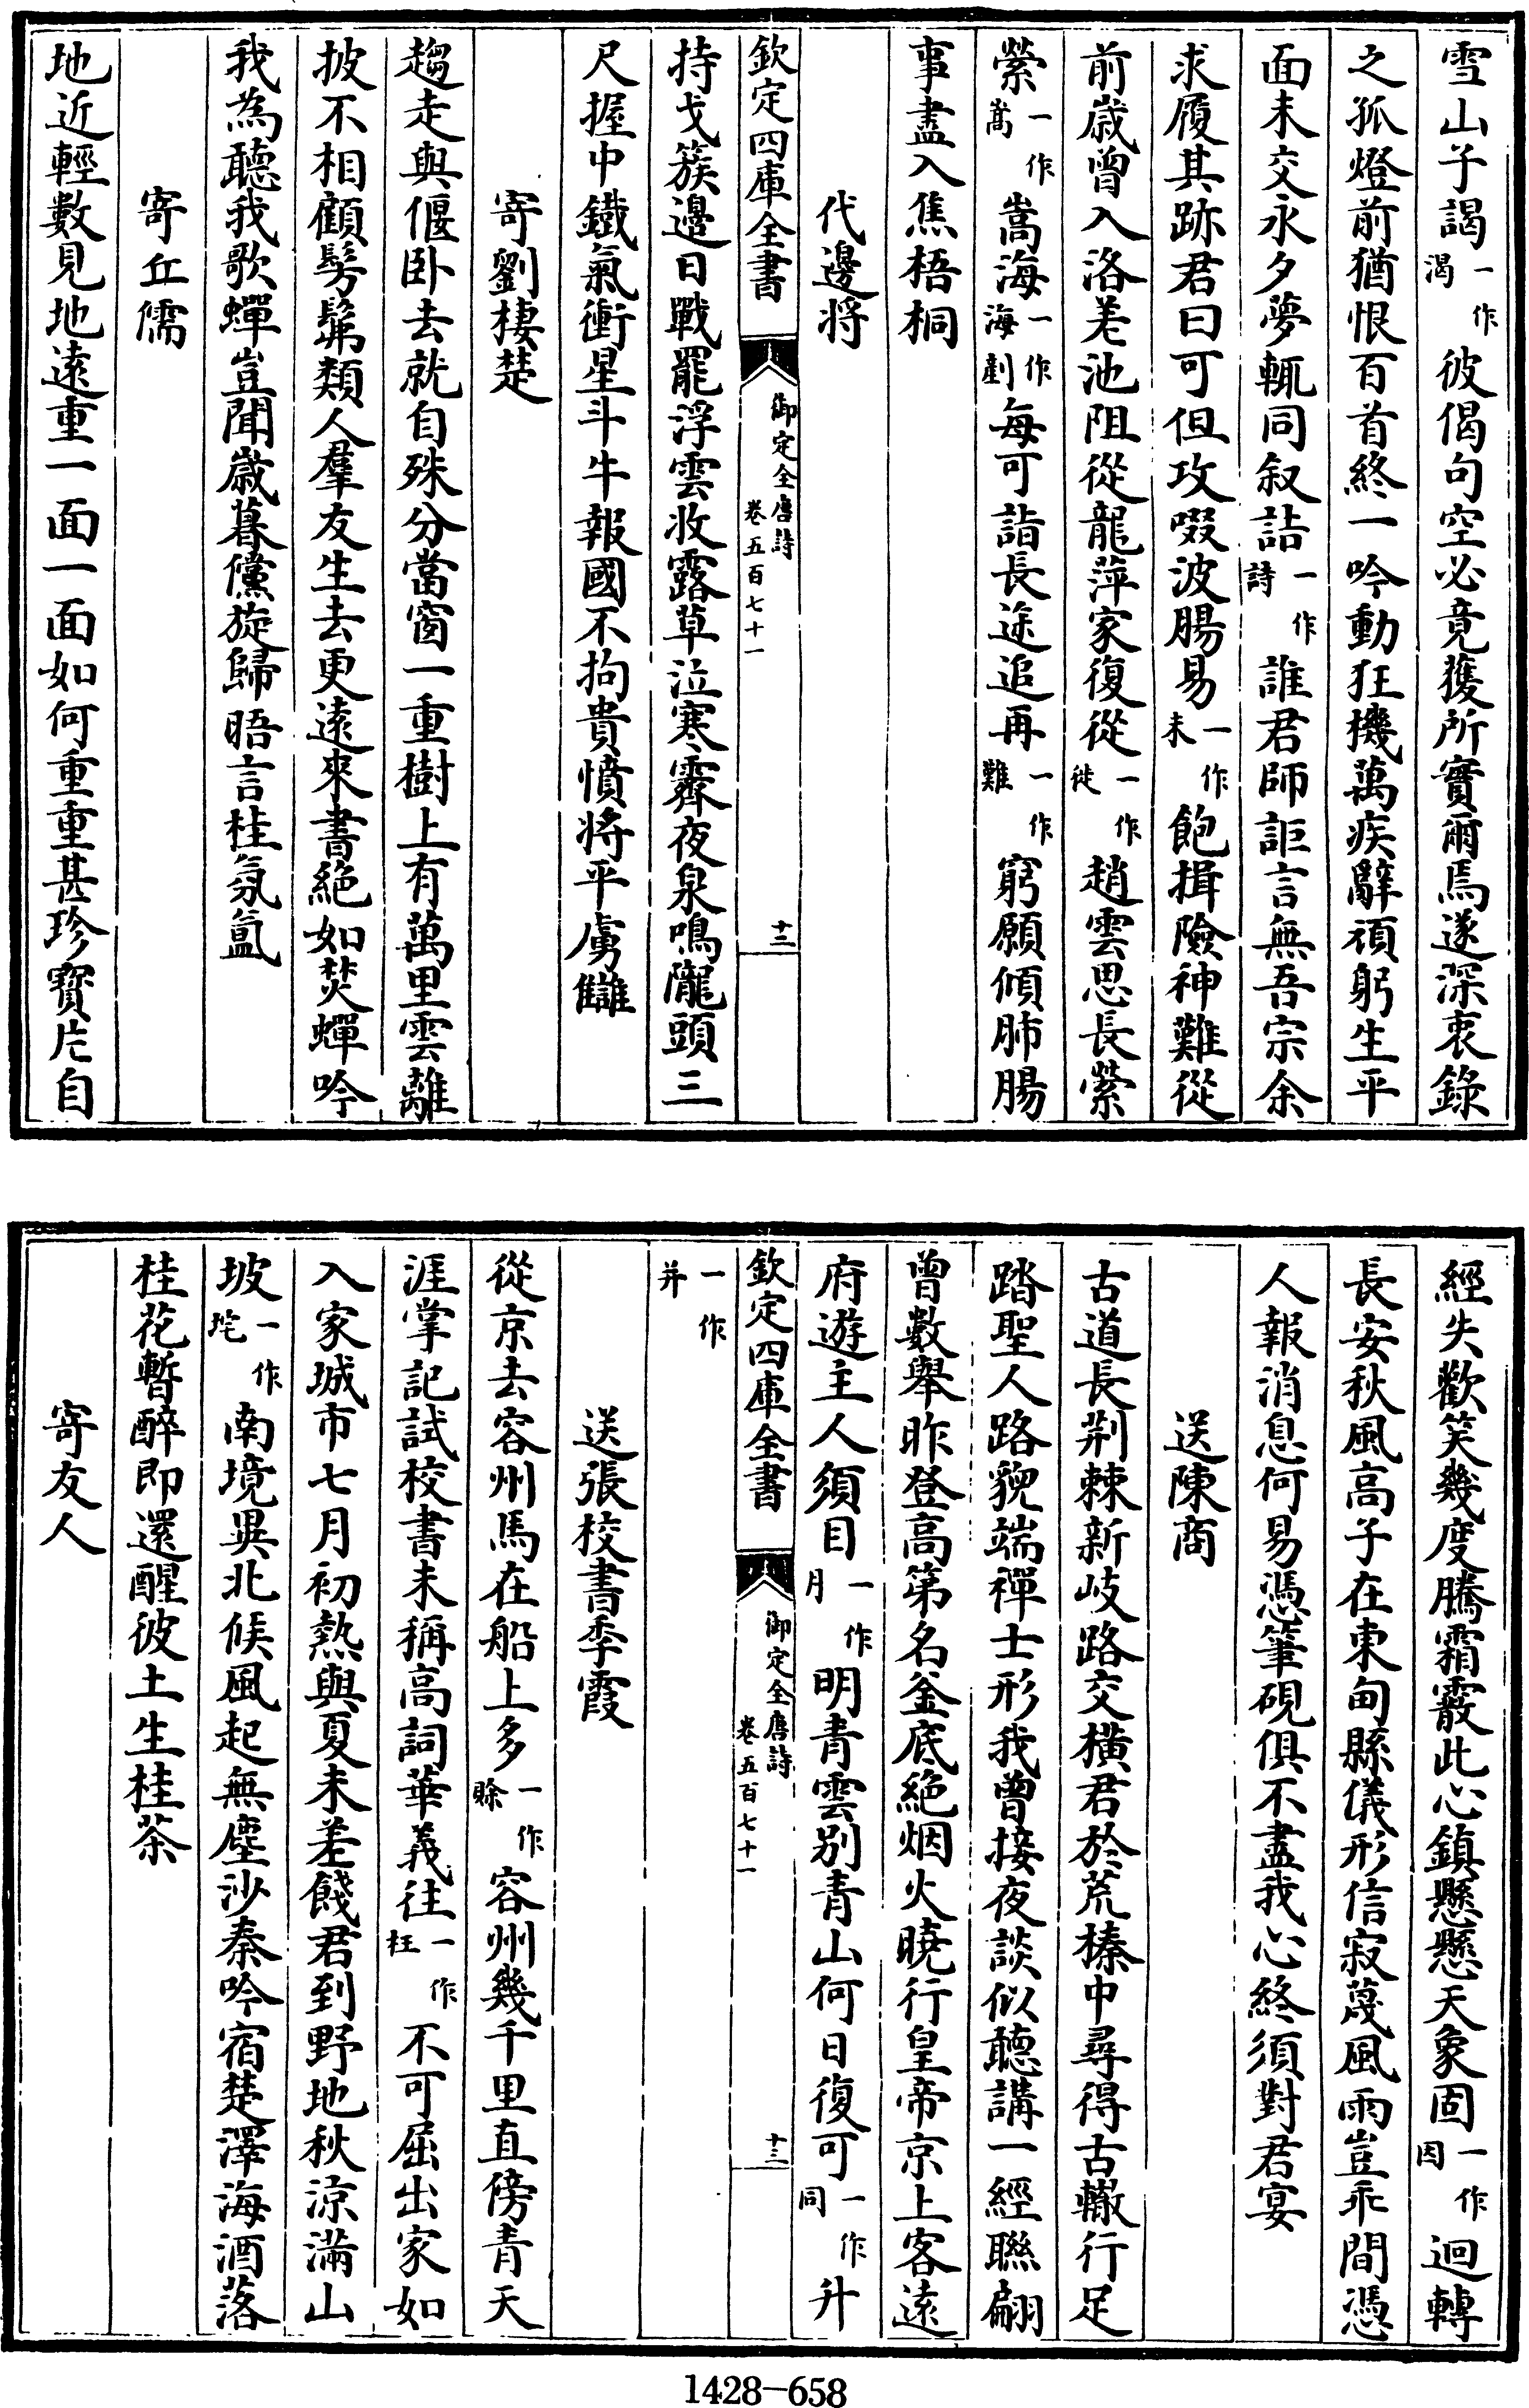 雪山子謁一作渴彼偈句空必竟獲所實爾焉遂深衷錄
之孤燈前猶恨百首終一吟動狂機萬疾辭頑躬生平
面未交永夕夢輒同叙詰一作詩誰君師詎言無吾宗余
求履其跡君曰可但攻啜波腸易一作未飽揖險神難從
前歲曾入洛差池阻從龍萍家復從一作徙趙雲思長縈
縈一作蒿嵩海一作海劃每可詣長途追再一作難窮願傾肺腸
事盡入焦梧桐
代邊將
欽定四庫全書
御定全唐詩
卷五百七十一
十二
持戈簇邊日戰罷浮雲收露草泣寒霽夜泉鳴隴頭三
尺握中鐵氣衝星斗牛報國不拘貴憤將平虜讎
寄劉棲楚
趨走與偃卧去就自殊分當窗一重樹上有萬里雲離
披不相顧髣髴類人羣友生去更遠來書絕如焚蟬吟
我為聽我歌蟬豈聞歲暮儻旋歸晤言桂氛氲
寄丘儒
地近輕數見地遠重一面一面如何重重甚珍寶片自
經失歡笑幾度騰霜霰此心鎮懸懸天象固一作因迴轉
長安秋風高子在東甸縣儀形信寂蔑風雨豈乖間憑
人報消息何易憑筆硯俱不盡我心終須對君宴
送陳商
古道長荆棘新岐路交橫君於荒榛中尋得古轍行足
踏聖人路貌端禪士形我曾接夜談似聽講一經聯翩
曾數舉昨登高第名釜底絕烟火曉行皇帝京上客遠
府遊主人須目一作月明青雲別青山何日復可一作同升
欽定四庫全書
御定全唐詩
卷五百七十一
十三
一作并
送張校書季霞
從京去容州馬在船上多一作賒容州幾千里直傍青天
涯掌記試校書未稱高詞華義往一作枉不可屈出家如
入家城市七月初熱與夏未差餞君到野地秋涼滿山
坡一作坨南境異北候風起無塵沙秦吟宿楚澤海酒落
桂花暫醉即還醒彼土生桂茶
寄友人
1428—658